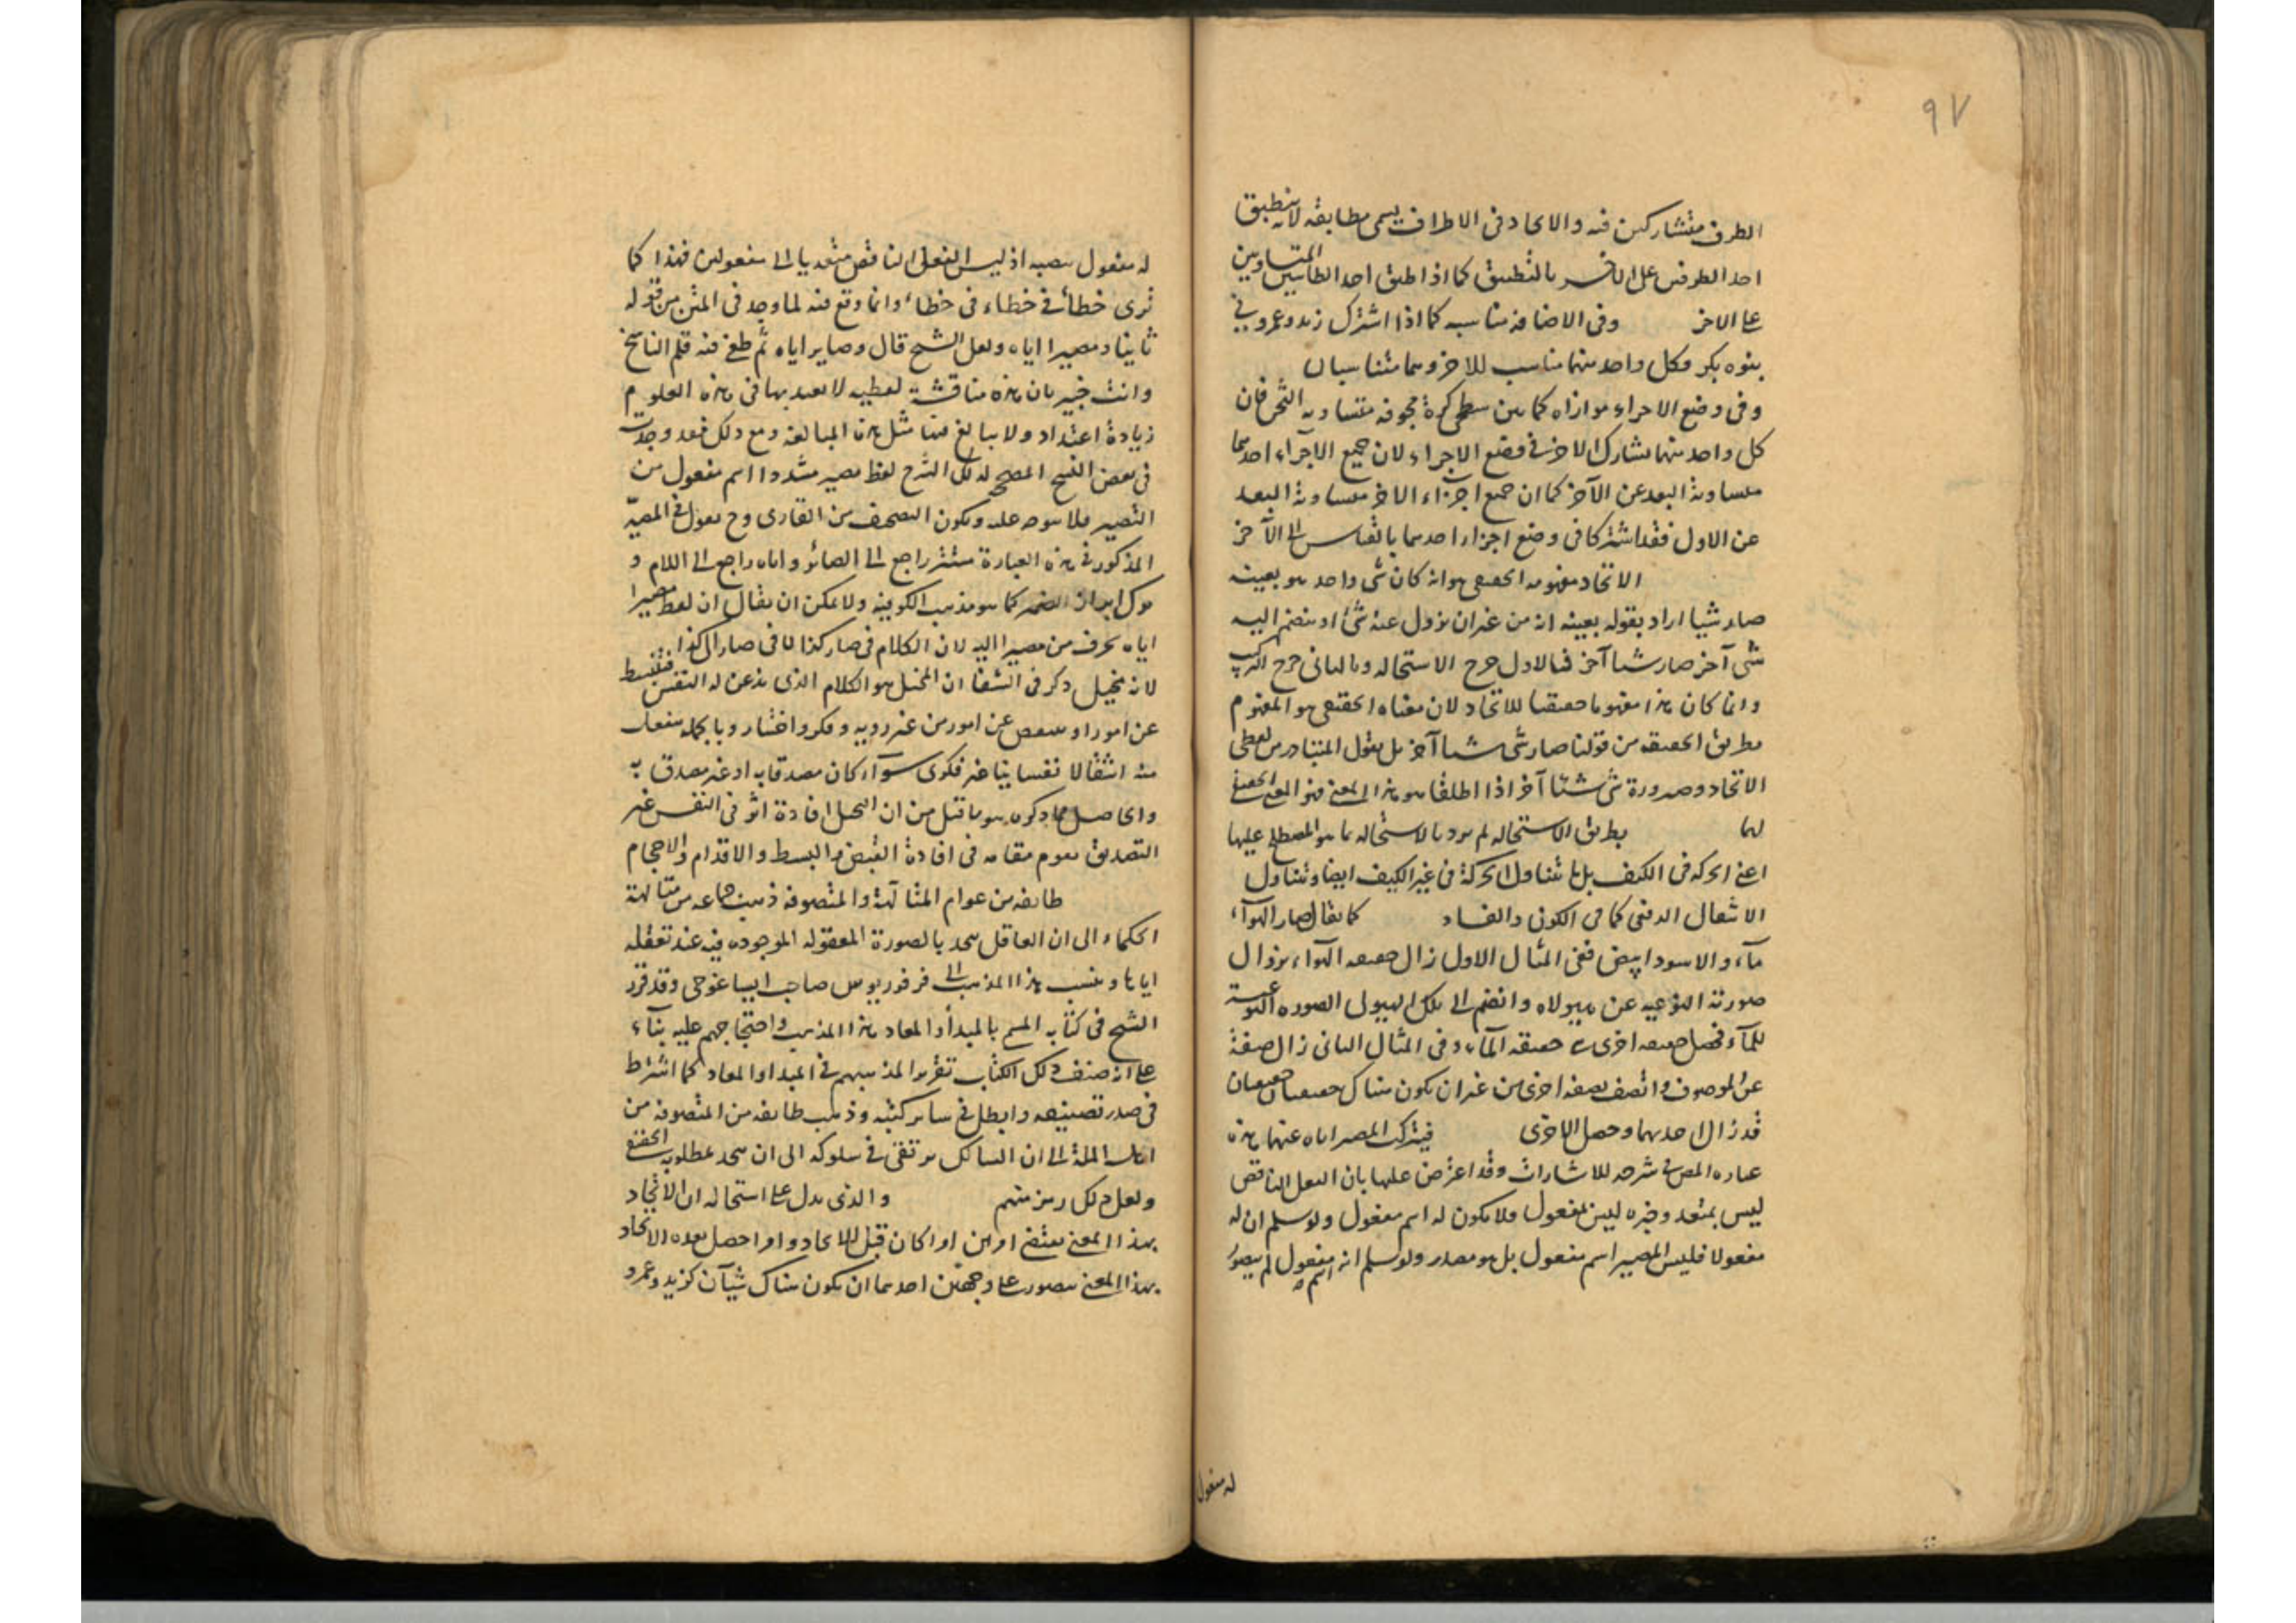 ٩٧
الطرف متشاركين فيه والاتحاد في الاطراف يسمى مطابقة لانه ينطبق
احد الطرفين على الآخر بالتطبيق كما اذا طبق احد الطاسين المتساويين
على الاخر وفي الاضافة مناسبه كما اذا اشترك زيد وعمرو في
بنوه بكر فكل واحد منهما مناسب للاخر وهما متناسبان
وفي وضع الاجزاء موازاه كما بين سطحي كرة مجوفه متساويه الثخن فان
كل واحد منهما يشارك الاخر في وضع الاجزاء لان جميع الاجزاء احدهما
متساوية البعد عن الآخر كما ان جميع اجزاء الاخر متساوية البعد
عن الاول فقد اشتركا في وضع اجزاء احدهما بالقياس الى الآخر
الاتحاد مفهومه الحقيقي هو انه كان شئ واحد هو بعينه
صار شيئا اراد بقوله بعينه انه من غير ان يزول عنه شئ او ينضم اليه
شئ آخر صار شيئا آخر فبالاول خرج الاستحاله وبالثاني خرج التركيب
وانما كان هذا مفهوما حقيقيا للاتحاد لان معناه الحقيقي هو المفهوم
بطريق الحقيقه من قولنا صار شئ شيئا آخر بل نقول المتبادر من لفظي
الاتحاد وصيرورة شئ شيئا آخر اذا اطلقا هو هذا المعنى فهو المعنى الحقيقي
لهما بطريق الاستحاله لم يرد بالاستحاله ما هو المصطلح عليها
اعني الحركه في الكيف بل ما يتناول الحركة في غير الكيف ايضا ويتناول
الانتقال الدفعي كما في الكون والفساد كما يقال صار الهوآء
مآء والاسود ابيض ففي المثال الاول زال حقيقه الهوآء بزوال
صورته النوعيه عن هيولاه وانضم الى تلك الهيولى الصوره النوعية
للمآء فحصل حقيقه اخرى هي حقيقه المآء وفي المثال الثاني زال صفة
عن الموصوف واتصف بصفه اخرى من غير ان يكون هناك حقيقتان
قد زال احديهما وحصل الاخرى فيترك المصير اياه عنهما هذه
عباره المص في شرحه للاشارات وقد اعترض عليها بان الفعل الناقص
ليس بمتعد وخبره ليس بمفعول فلا يكون له اسم مفعول ولو سلم ان له
مفعولا فليس المصير اسم مفعول بل هو مصدر ولو سلم انه اسم مفعول لم يتصور
له مفعول
له مفعول ينصبه اذ ليس الفعل الناقص متعديا الى مفعولين فهذا كما
ترى خطأ في خطاء في خطاء وانما وقع فيه لما وجد في المتن من قوله
ثانيا ومصيرا اياه ولعل الشيخ قال وصايرا اياه ثم طغى فيه قلم الناسخ
وانت خبير بان هذه مناقشة لفظيه لا يعتد بها في هذه العلوم
زيادة اعتداد ولا يبالغ فيها مثل هذه المبالغه ومع ذلك فقد وجدت
في بعض النسخ المصححه لذلك الشرح لفظ مصير مشددا اسم مفعول من
التصيير فلا يتوجه عليه ويكون التصحيف من القارى وح نقول في المصير
المذكور في هذه العبارة مستتر راجع الى الصائر واياه راجع الى اللام و
ترك ابراز الضمير كما هو مذهب الكوفيه ولا يمكن ان يقال ان لفظ مصيرا
اياه تحرف من مصيرا اليه لان الكلام في صار كذا لا في صار الى كذا
لانه تخيل ذكر في الشفا ان المخيل هو الكلام الذي تذعن له النفس فتنبسط
عن امور او تنقبض عن امور من غير رويه وفكر واختيار وبالجمله تنفعل
منه انفعالا نفسانيا غير فكرى سوآء كان مصدقا به او غير مصدق به
والحاصل مما ذكره هو ما قيل من ان التخيل افادة اثر في النفس غير
التصديق يقوم مقامه في افادة القبض والبسط والاقدام والاحجام
طايفه من عوام المتألهة والمتصوفه ذهب جماعه من متألهة
الحكماء الى ان العاقل يتحد بالصورة المعقوله الموجوده فيه عند تعقله
اياها وينسب هذا المذهب الى فرفوريوس صاحب ايساغوجى وقد قرر
الشيخ في كتابه المسمى بالمبدأ والمعاد هذا المذهب واحتجاجهم عليه بنآء
على انه صنف ذلك الكتاب تقريرا لمذهبهم في المبدا والمعاد كما اشترط
في صدر تصنيفه وابطل في ساير كتبه وذهب طايفه من المتصوفه من
اهل الملة الى ان السالك يرتقى في سلوكه الى ان يتحد بمطلوبه الحقيقي
ولعل ذلك رمز منهم والذى يدل على استحاله ان الاتحاد
بهذا المعنى يقتضى امرين امرا كان قبل الاتحاد وامرا حصل بعده الاتحاد
بهذا المعنى يتصور على وجهين احدهما ان يكون هناك شيآن كزيد وعمرو